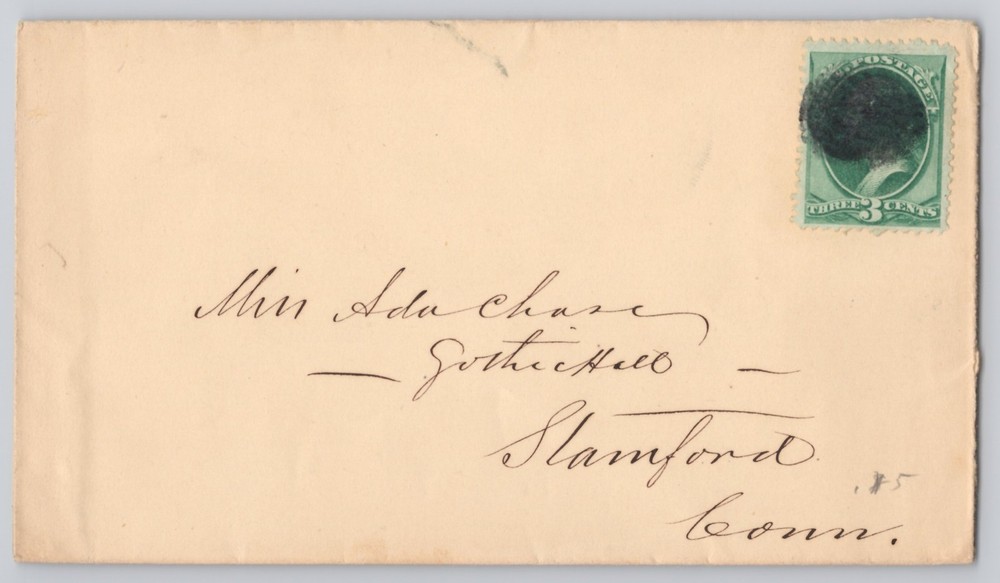 POSTAGE
THREE 3 CENTS
Miss Ada Chase
— Gothic Hall —
Stamford
Conn.